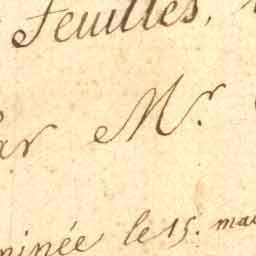 Feuilles,
Par Mr.
minée le 15. mai